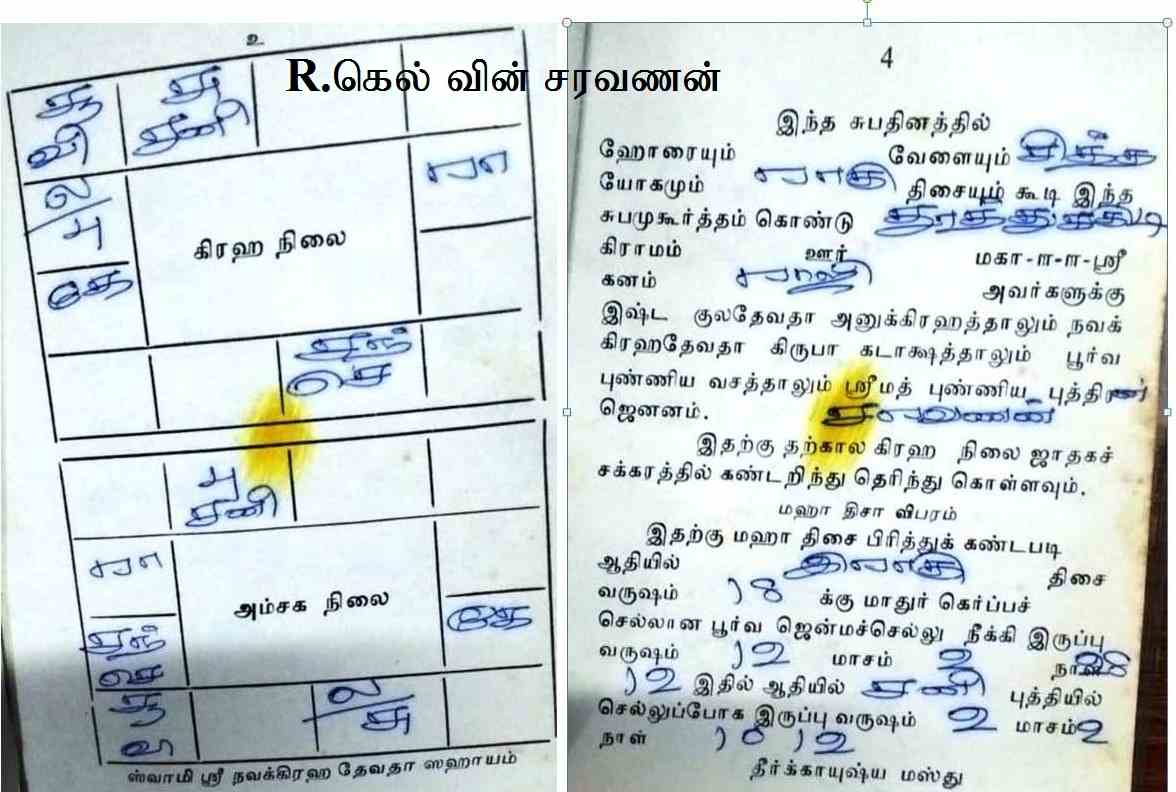 R.கெல் வின் சரவணன்
உ
சூ சு
வி சனி
ல
பு
கே
ரா
கிரஹ நிலை
சந்
செ
பு
சனி
ரா
சந்
செ
சூ
கே
அம்சக நிலை
ல
சு
ஸ்வாமி ஸ்ரீ நவக்கிரஹ தேவதா ஸஹாயம்
4
இந்த சுபதினத்தில்
ஹோரையும் வேளையும் சித்த
யோகமும் ராகு திசையும் கூடி இந்த
சுபமுகூர்த்தம் கொண்டு
கிராமம் ஊர் மகா-ள-ள-ஸ்ரீ
கனம் அவர்களுக்கு
இஷ்ட குலதேவதா அனுக்கிரஹத்தாலும் நவக்
கிரஹதேவதா கிருபா கடாக்ஷத்தாலும் பூர்வ
புண்ணிய வசத்தாலும் ஸ்ரீமத் புண்ணிய புத்திரன்
ஜெனனம். சரவணன்
இதற்கு தற்கால கிரஹ நிலை ஜாதகச்
சக்கரத்தில் கண்டறிந்து தெரிந்து கொள்ளவும்.
மஹா திசா விபரம்
இதற்கு மஹா திசை பிரித்துக் கண்டபடி
ஆதியில் திசை
வருஷம் 18 க்கு மாதுர் கெர்ப்பச்
செல்லான பூர்வ ஜென்மச்செல்லு நீக்கி இருப்பு
வருஷம் 12 மாசம் 2 நாள் 28
12 இதில் ஆதியில் சனி புத்தியில்
செல்லுப்போக இருப்பு வருஷம் 2 மாசம் 2
நாள் 18 12
தீர்க்காயுஷ்ய மஸ்து